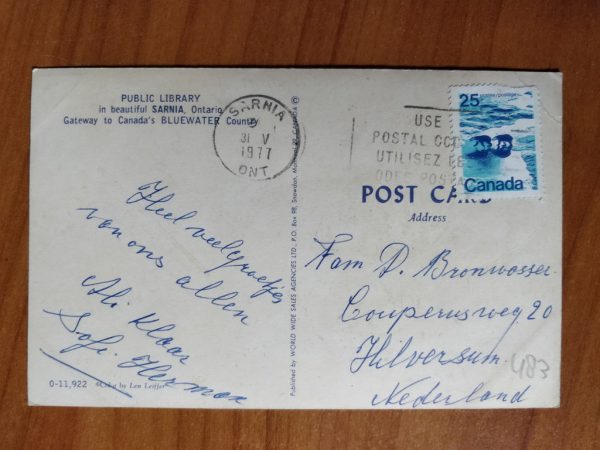 PUBLIC LIBRARY
in beautiful SARNIA, Ontario
Gateway to Canada's BLUEWATER Country
SARNIA
31 V
1977
ONT
USE
POSTAL
UTILISEZ
25
Canada
POST CARD
Address
Heel veel groetjes
van ons allen
Ali Klaas
Sofi. Herman
Fam D. Bronwasser.
Couperusweg 20
Hilversum.
Nederland
483
0-11,922
by Len Leiffer
Published by WORLD WIDE SALES AGENCIES LTD., P.O. Box 98, Snowdon, Montreal 29, CANADA ©